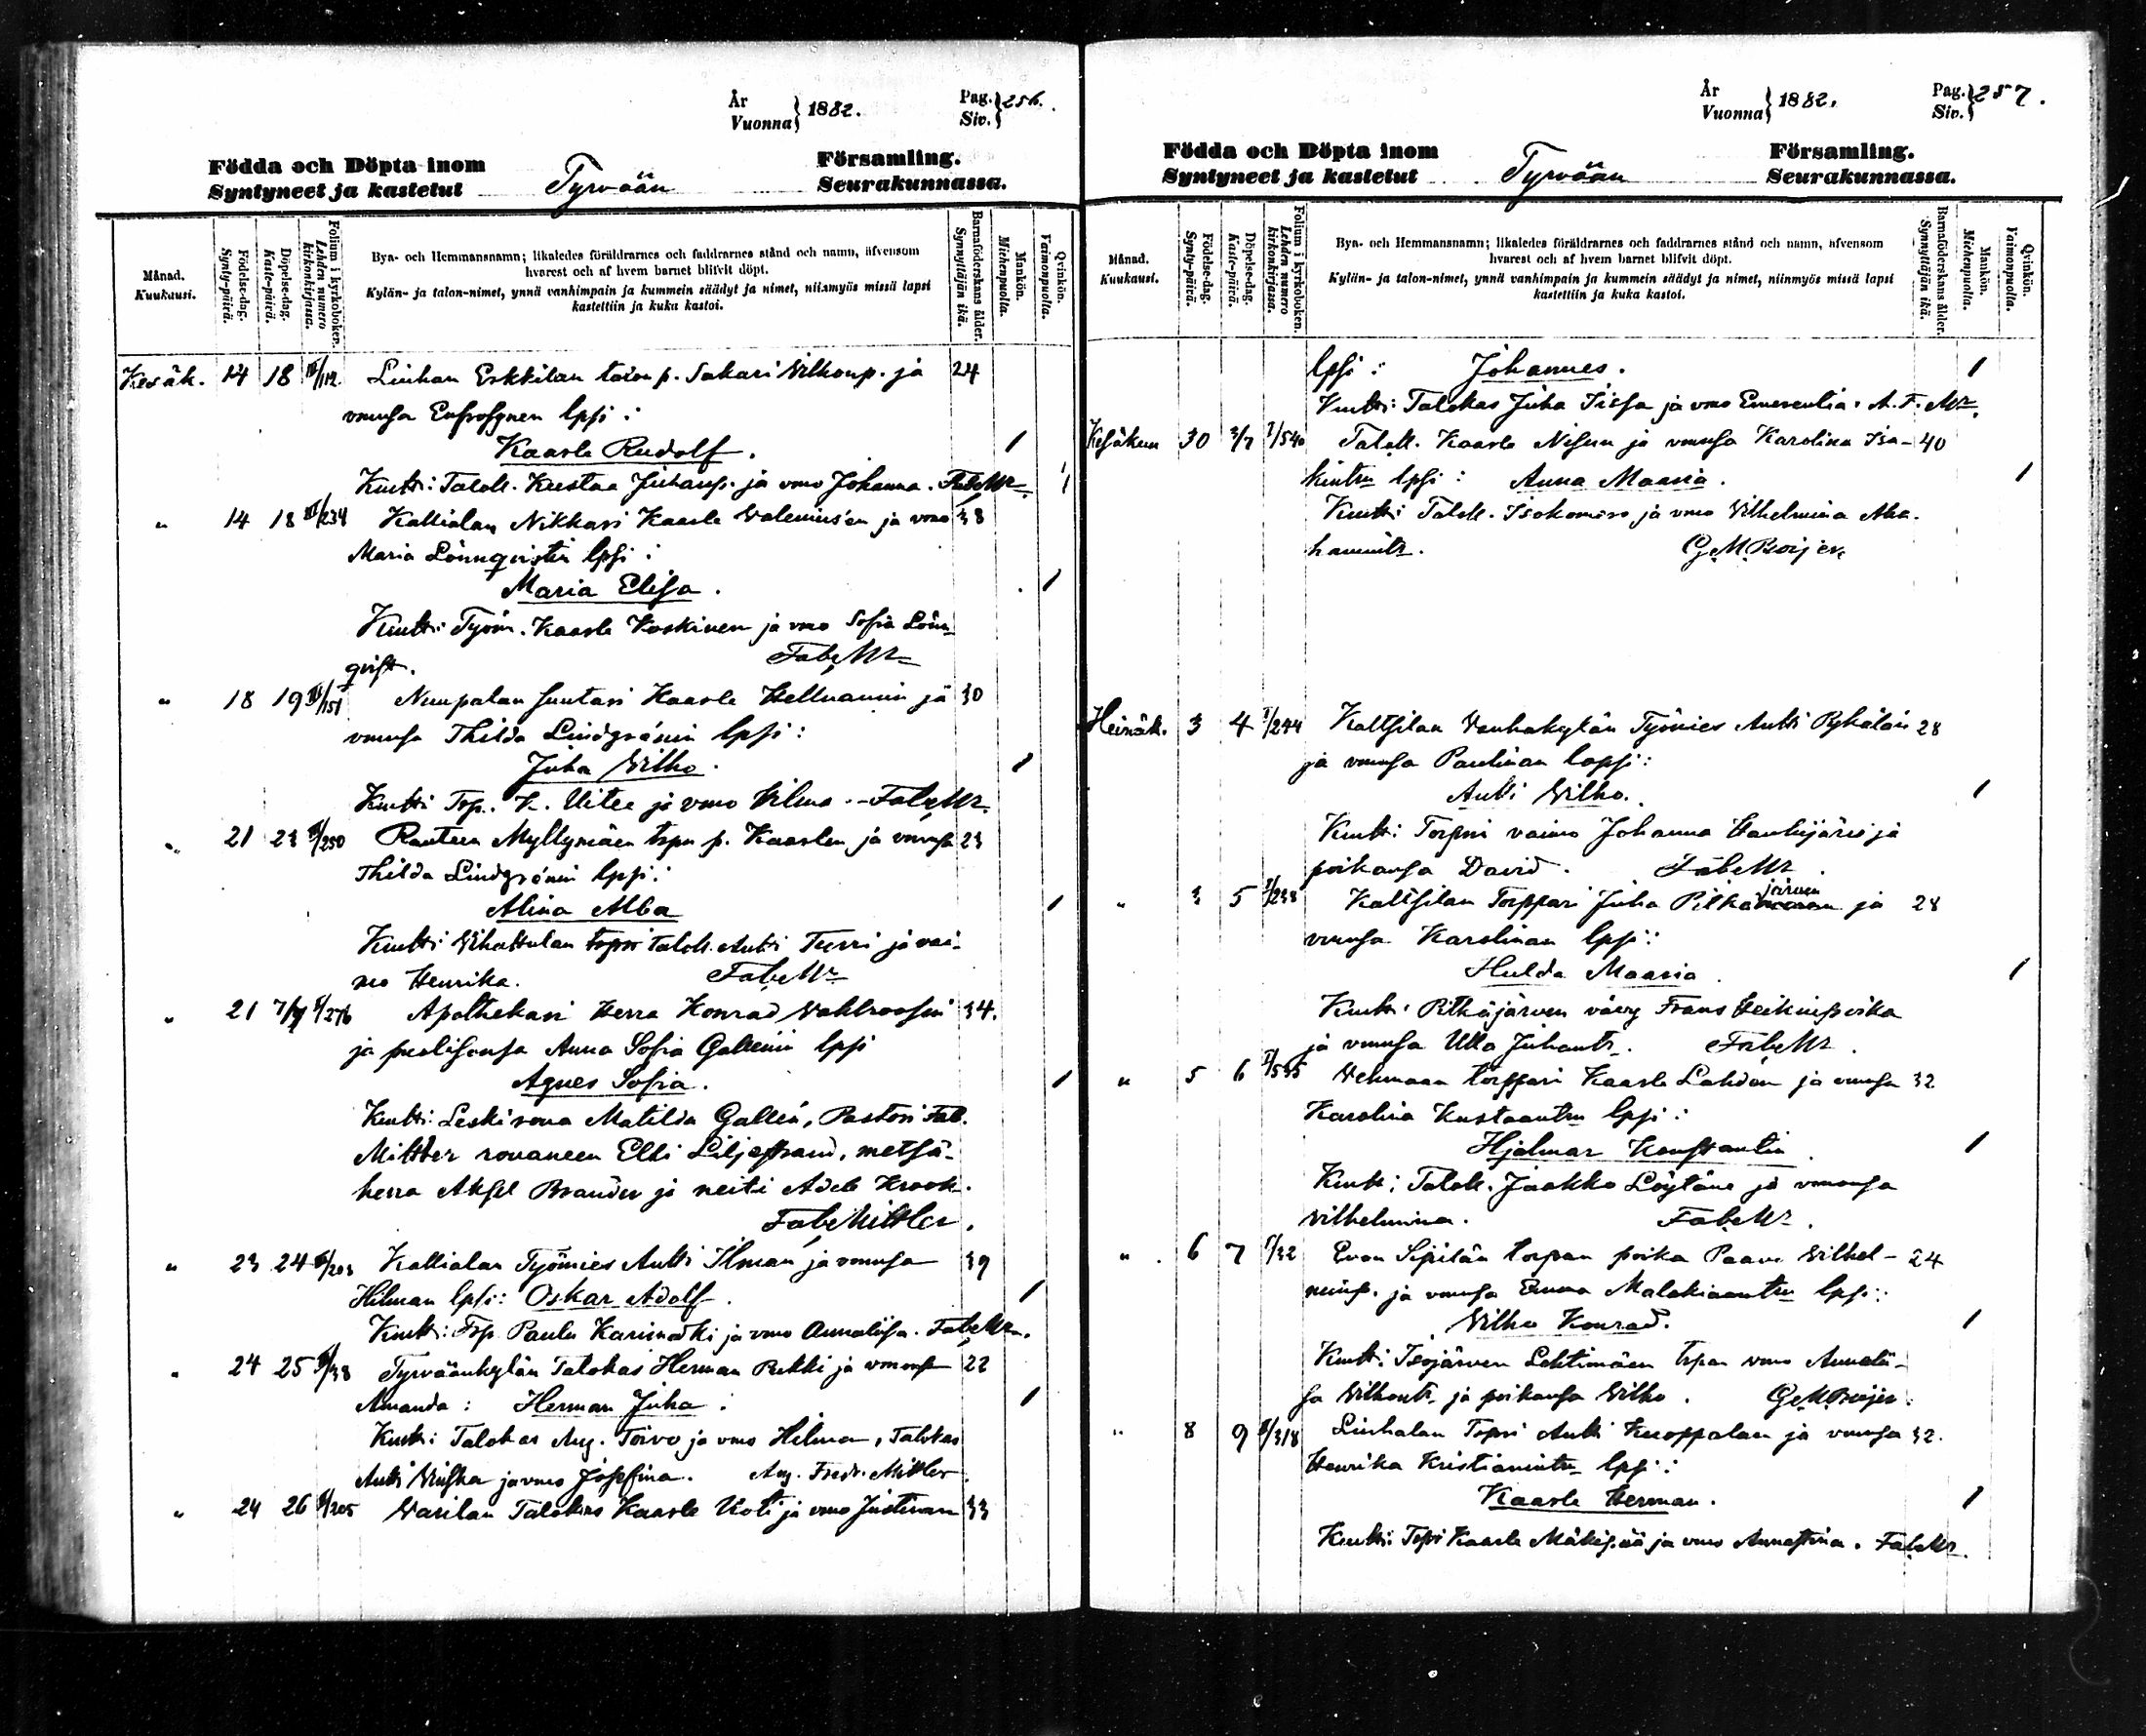 År
Vuonna } 1882.
Pag.
Siv. } 256.
Födda och Döpta inom
Syntyneet ja kastetut
Tyrvään
Församling.
Seurakunnassa.
Månad.
Kuukausi.
Födelse-dag.
Synty-päivä.
Döpelse-dag.
Kaste-päivä.
Folium i kyrkoboken.
Lehden numero kirkonkirjassa.
Bya- och Hemmansnamn; likaledes föräldrarnes och faddrarnes stånd och namn, äfvensom
hvarest och af hvem barnet blifvit döpt.
Kylän- ja talon-nimet, ynnä vanhimpain ja kummein säädyt ja nimet, niinmyös missä lapsi
kastettiin ja kuka kastoi.
Barnaföderskans ålder.
Synnyttäjän ikä.
Mankön.
Miehenpuolia.
Qvinkön.
Vaimonpuolia.
Kesäk. 14 18 III/112. Liuhan Eskkilan talon p. Sakari Vilhonp. ja 24
vmnsa Eufrosynen lpsi:
Kaarle Rudolf.
Kmtti: Talok. Kustaa Juhanp. ja vmo Johanna. FabMr
" 14 18 III/234 Kallialan Nikkari Kaarle Valenius'en ja vmo 38
Maria Lönnqvistin lpsi:
Maria Elisa.
Kmtti: Työm. Kaarle Koskinen ja vmo Sofia Lönn
qvist. FabMr
" 18 19 III/151 Nuupalan Suutari Kaarle Hellmanin ja 30
vmnsa Thilda Lindgrénin lpsi:
Juha Vilho.
Kmtti Trp. K. Uitee ja vmo Vilma. - FabMr.
" 21 23 /250 Rauteen Myllymäen trpn p. Kaarlen ja vmnsa 23
Thilda Lindgrénin lpsi:
Alina Alba
Kmtti: Vihattulan Talok. Antti Turri ja vai-
mo Henrika. FabMr
" 21 7/7 /276 Apothekari Herra Konrad Vahlroosin 34.
ja puolisonsa Anna Sofia Gallénin lpsi
Agnes Sofia.
Kmtti: Leskirova Matilda Gallén, Pastori Fab.
Mittler rouvaneen Elli Liljestrand, metsä-
herra Aksel Brander ja neiti Adele Krook.
FabMittler.
" 23 24 /203 Kallialan Työmies Antti Ilman ja vmnsa 39
Hilman lpsi: Oskar Adolf.
Kmtti: Trp. Paulu Karimäki ja vmo Annaliisa. FabMr.
" 24 25 /38 Tyrväänkylän Talokas Herman Pukki ja vmonsa 22
Amanda: Herman Juha.
Kmtti: Talokas Aug. Toivo ja vmo Hilma, Talokas
Antti ja vmo Josefina. Aug. Fredr. Mittler.
" 24 26 /205 Varilan Talokas Kaarle Koti ja vmo Justinan 33
År
Vuonna } 1882.
Pag.
Siv. } 257.
Födda och Döpta inom
Syntyneet ja kastetut
Tyrvään
Församling.
Seurakunnassa.
Månad.
Kuukausi.
Födelse-dag.
Synty-päivä.
Döpelse-dag.
Kaste-päivä.
Folium i kyrkoboken.
Lehden numero kirkonkirjassa.
Bya- och Hemmansnamn; likaledes föräldrarnes och faddrarnes stånd och namn, äfvensom
hvarest och af hvem barnet blifvit döpt.
Kylän- ja talon-nimet, ynnä vanhimpain ja kummein säädyt ja nimet, niinmyös missä lapsi
kastettiin ja kuka kastoi.
Barnaföderskans ålder.
Synnyttäjän ikä.
Mankön.
Miehenpuolia.
Qvinkön.
Vaimonpuolia.
lpsi: Johannes.
Kmtti: Talokas Juha Iissa ja vmo Emerentia. A. F. Mr.
Kesäkuu 30 2/7 /540 Talok. Kaarle Nisun ja vmnsa Karolina Isa- 40
kintr. lpsi: Anna Maaria.
Kmtti Talok. Isokomero ja vmo Vilhelmina Abra-
hamintr. GMBoijer.
Heinäk. 3 4 I/244 Kaltsilan Vanhakylän Työmies Antti Pykälän 28
ja vmnsa Paulinan lapsi:
Antti Vilho.
Kmtti: Torpni vaimo Johanna Haukijärvi ja
poikansa David. FabMr.
" 3 5 I/238 Kaltsilan Torppari Juha Pitkäjärven ja 28
vmnsa Karolinan lpsi:
Hulda Maaria
Kmtti: Pitkäjärven vävy Frans Heikinpoika
ja vmnsa Ulla Juhantr. FabMr.
" 5 6 /535 Vehmaan torppari Kaarle Lahden ja vmnsa 32
Karolina Kustaantr. lpsi:
Hjalmar Konstantin
Kmtti: Talok. Jaakko Löytäne ja vmonsa
Vilhelmina. FabMr.
" 6 7 /32 Evon Sipilän torpan poika Paavo Vilhel- 24
minp. ja vmnsa Emma Malakiaantr. lpsi:
Vilho Konrad.
Kmtti: Isojärven Lehtimäen trpan vmo Annalii-
sa Vilhontr. ja poikansa Vilho. GMBoijer.
" 8 9 /318 Liuhalan Trpri Antti Kuoppalan ja vmnsa 32.
Henrika Kristianintr. lpsi:
Kaarle Herman.
Kmtti: Trpri Kaarle Mäkipää ja vmo Annastina. FabMr.